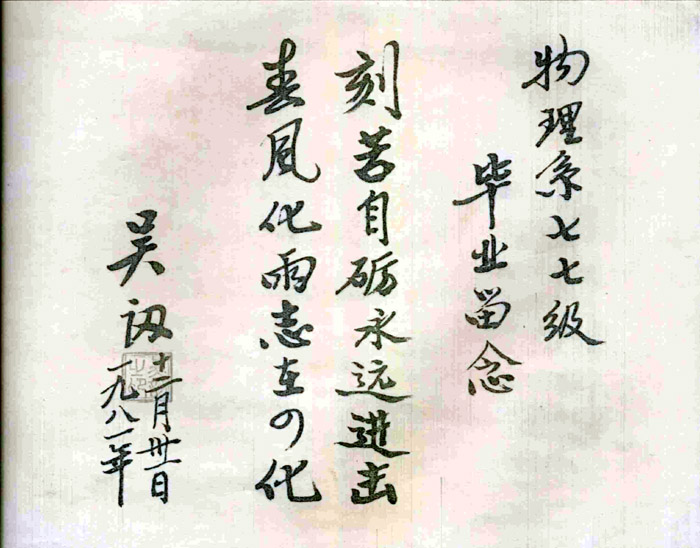 物理系七七级
毕业留念
刻苦自砺永远进击
春风化雨志在四化
吴讱
一九八一年
十二月卅一日